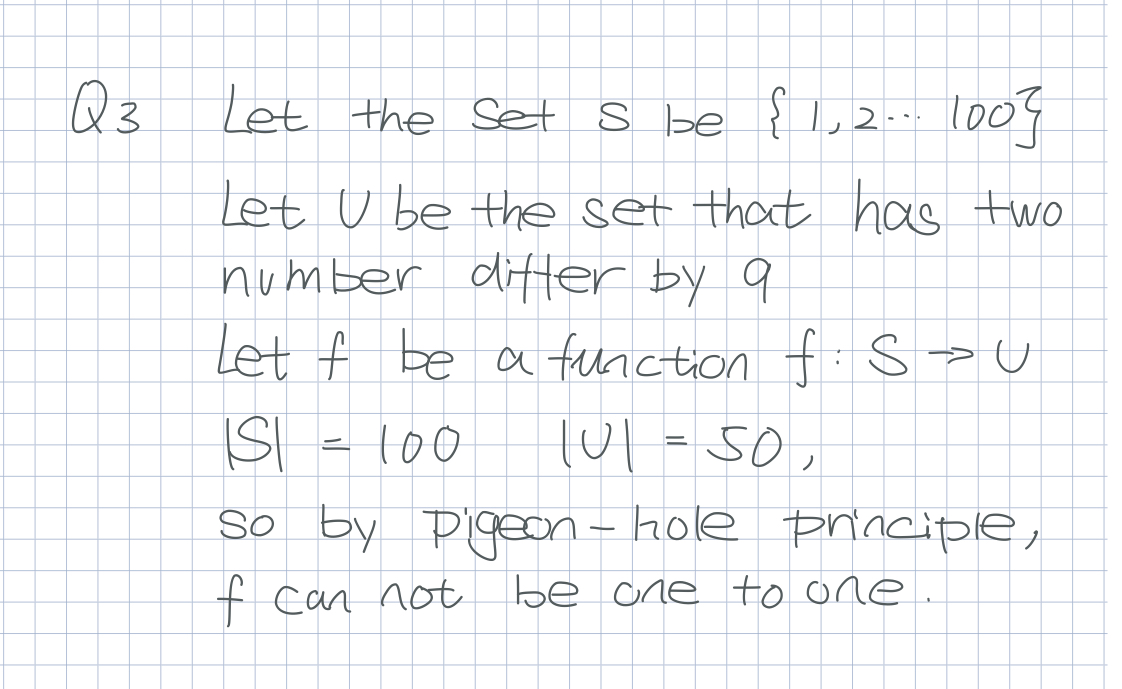 Q3 Let the set S be {1,2... 100}
Let U be the set that has two
number differ by 9
Let f be a function f: S → U
|S| = 100 |U| = 50,
so by pigeon-hole principle,
f can not be one to one.